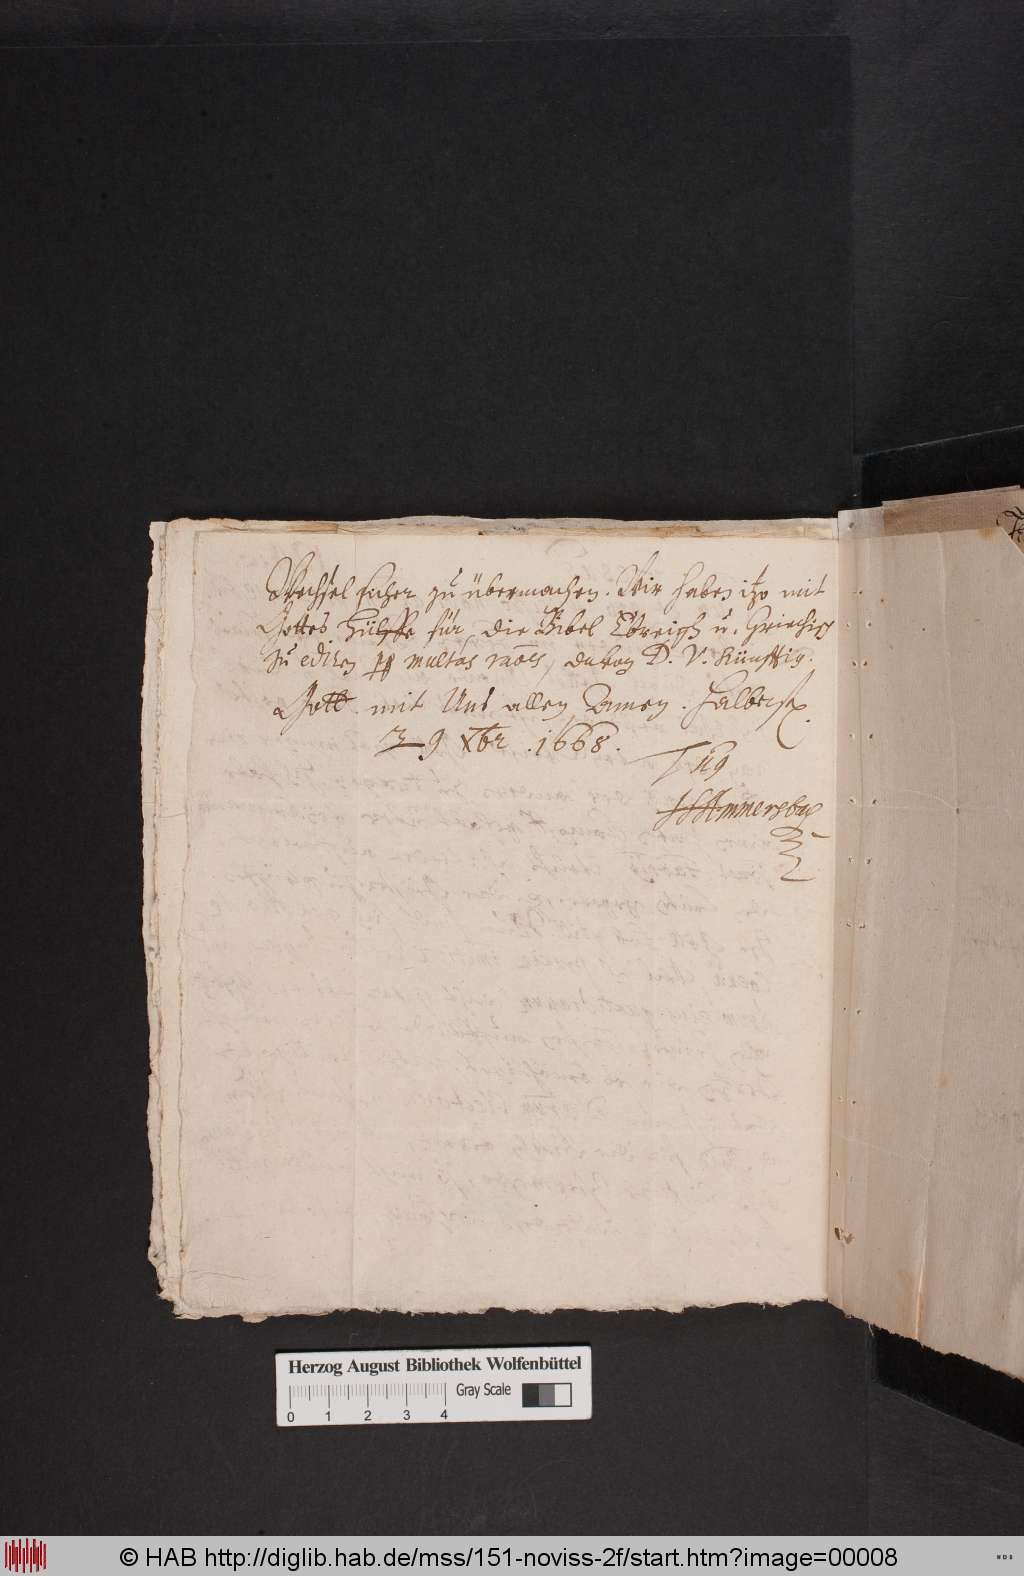 Wechsel sicher zu übermachen. Wir haben itzo mit
Gottes Hülffe für, die Bibel Ebreisch u. Griechisch
zu ediren multas davon D. V. künfftig.
Gott mit Uns allen Amen. Halberst.
9 Xbr. 1668.
HSAmmersbach
Herzog August Bibliothek Wolfenbüttel
Gray Scale
0 1 2 3 4
© HAB http://diglib.hab.de/mss/151-noviss-2f/start.htm?image=00008